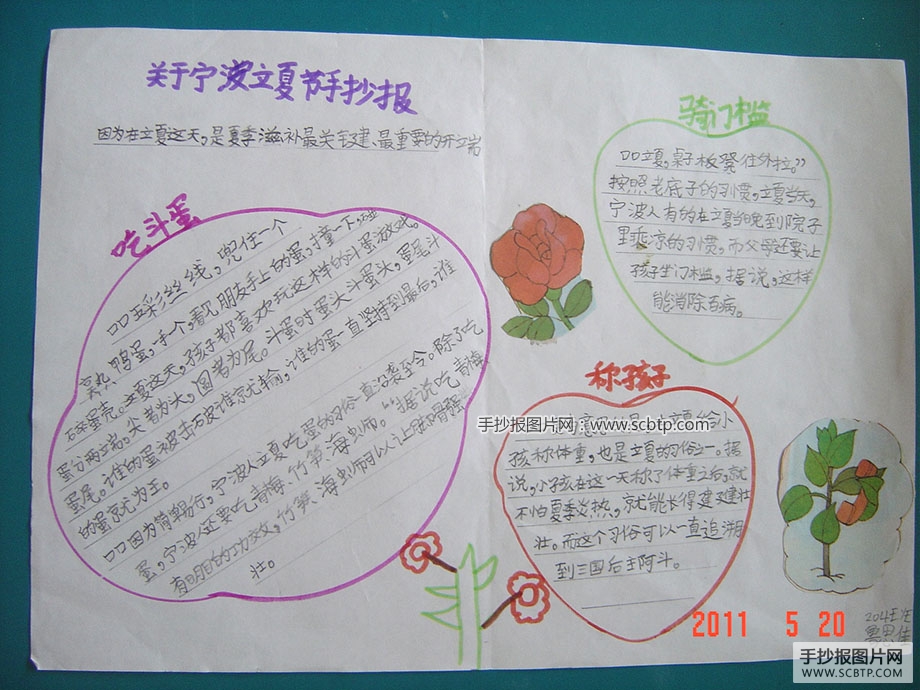 关于宁波立夏节手抄报
因为在立夏这天,是夏季滋补最关键、最重要的开端
吃斗蛋
口口五彩丝线,兜住一个
熟鸭蛋,手个,看见朋友手上的蛋,撞一下,碰
碎蛋壳。立夏这天,孩子都喜欢玩这样的斗蛋游戏。
蛋分两端,尖者为大,圆者为尾。斗蛋时蛋头斗蛋头,蛋尾斗
蛋尾。谁的蛋被击石皮谁就输,谁的蛋一直坚持到最后,谁
的蛋就为王。
口口因为简单易行,宁波人立夏吃蛋的习俗一直沿袭至今。除了吃
蛋,宁波还要吃青梅、竹笋、海虫师。“据说吃青梅
有明目的功效,竹笋、海虫师可以让脚骨强
壮。
骑门槛
口口立夏,桌子板凳往外拉。”
按照老底子的习惯,立夏当天,
宁波人有的在立夏当晚到院子
里乘凉的习惯,而父母还要让
孩子坐门槛,据说,这样
能消除百病。
称孩子
立夏给小
孩称体重,也是立夏的习俗之一。据
说,小孩在这一天称了体重之后,就
不怕夏季炎热,就能长得健健壮
壮。而这个习俗可以一直追溯
到三国后主阿斗。
手抄报图片网 - www.scbtp.com
2011 5 20
手抄报图片网
WWW.SCBTP.COM